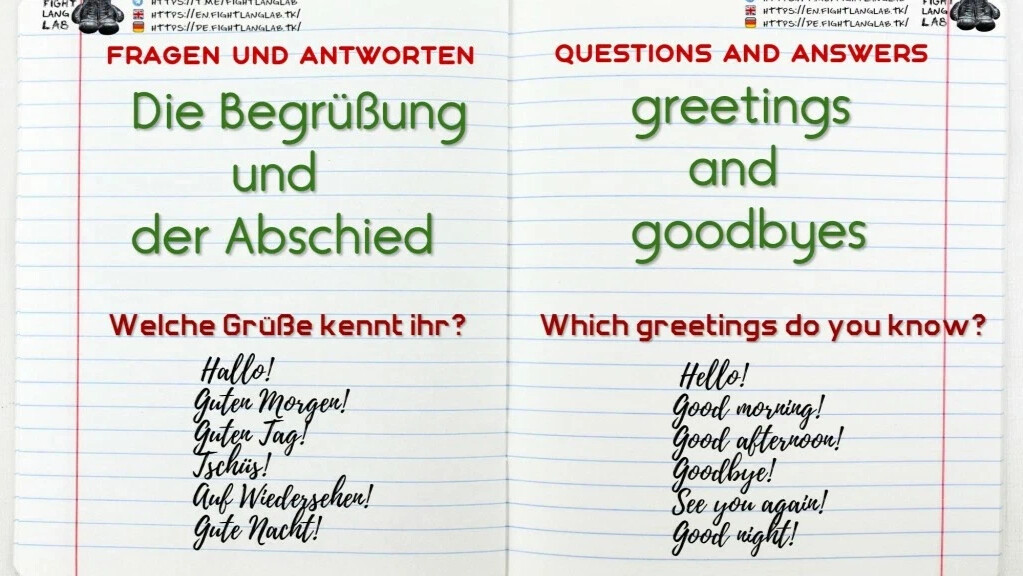 FIGHT
LANG
LAB
HTTPS://T.ME/FIGHTLANGLAB
HTTPS://EN.FIGHTLANGLAB.TK/
HTTPS://DE.FIGHTLANGLAB.TK/
FRAGEN UND ANTWORTEN
Die Begrüßung
und
der Abschied
Welche Grüße kennt ihr?
Hallo!
Guten Morgen!
Guten Tag!
Tschüs!
Auf Wiedersehen!
Gute Nacht!
HTTPS://EN.FIGHTLANGLAB.TK/
HTTPS://DE.FIGHTLANGLAB.TK/
FIGHT
LANG
LAB
QUESTIONS AND ANSWERS
greetings
and
goodbyes
Which greetings do you know?
Hello!
Good morning!
Good afternoon!
Goodbye!
See you again!
Good night!